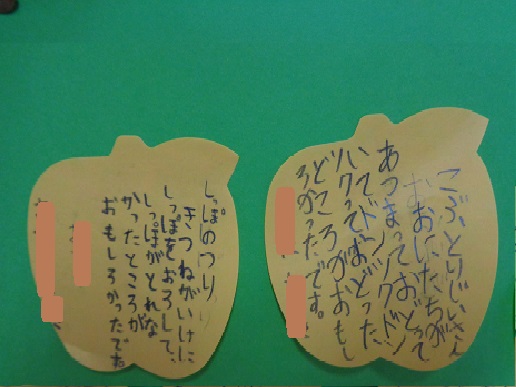 こぶとりじいさん
おにたちが
あつまっておどって
いてドンツクドン
ツクっておどった
ところがおもし
ろかったです。
しっぽのつり
きつねがいけに
しっぽをおろして、
しっぽがとれな
かったところが
おもしろかったです